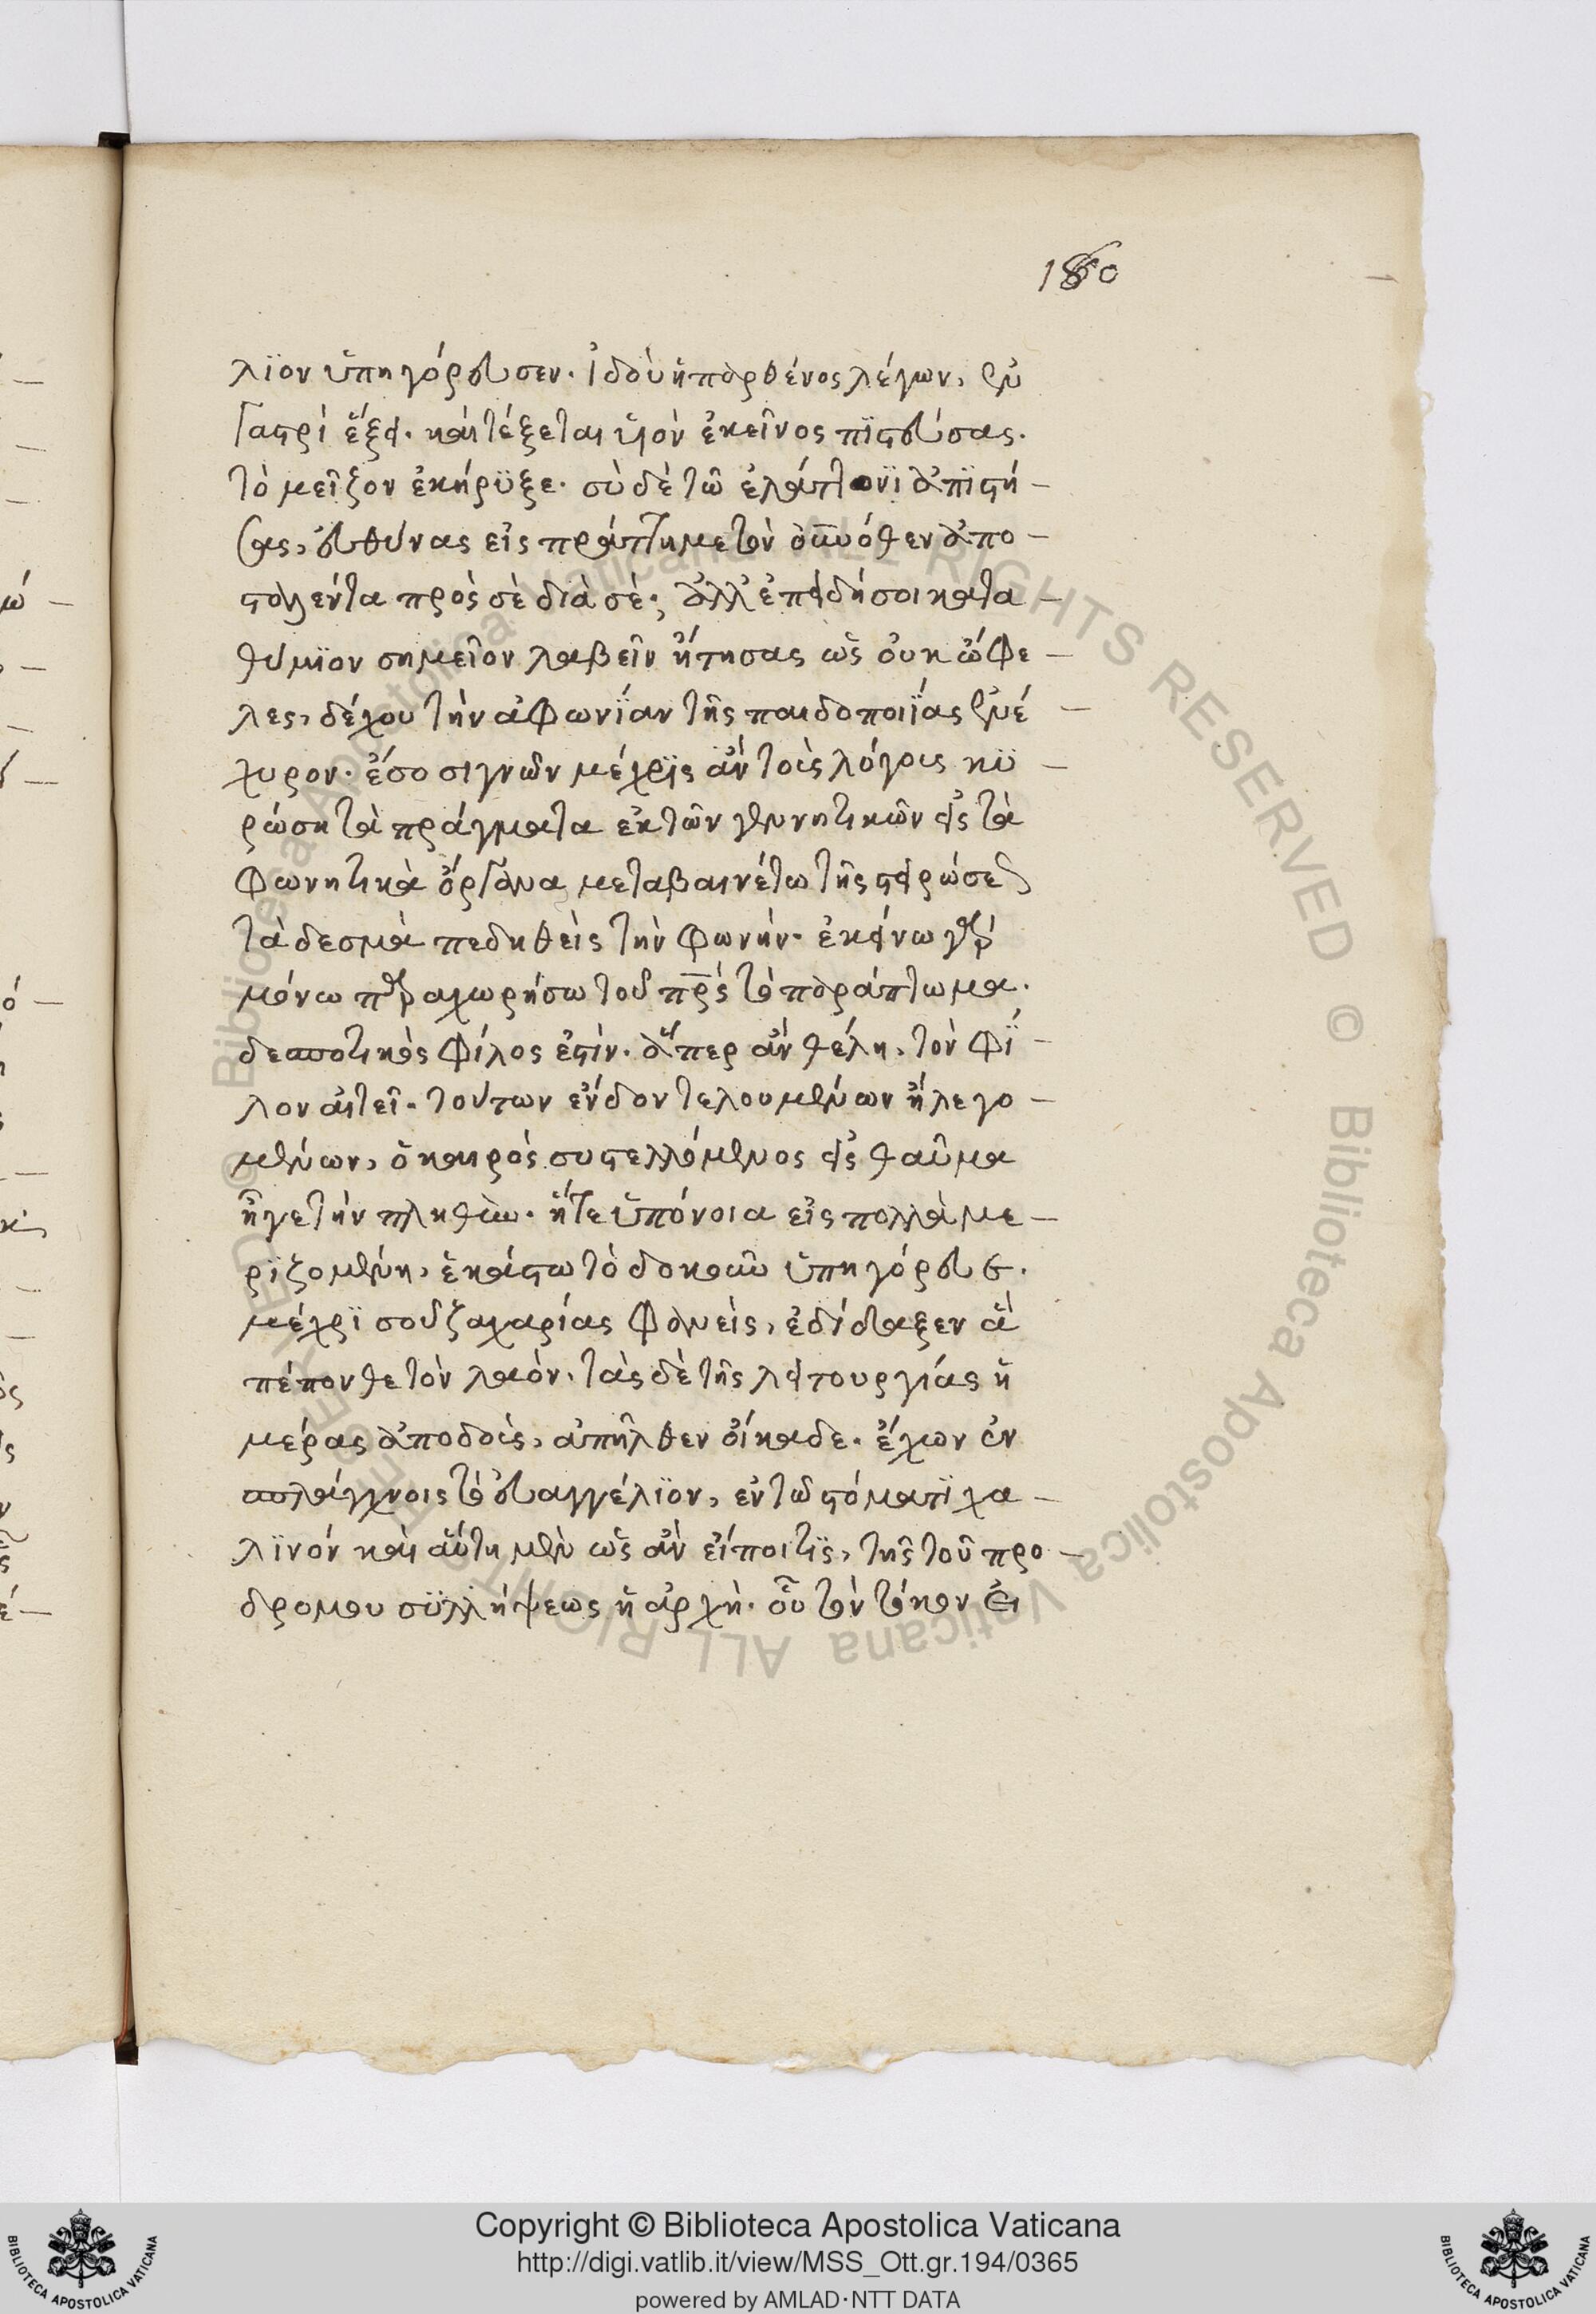 180
λϊον ὑπηγόρευσεν. ἰδοὺ ἡ παρθένος λέγων, ἐν
γαστρὶ ἕξει. καὶ τέξεται υἱὸν ἐκεῖνος πϊστεύσας.
τὸ μεῖζον ἐκήρϋξε. σὺ δὲ τῶ ἐλάττονϊ ἀπϊστή –
σας, εὐθύνας εἰσπράττη με τὸν ἄνωθεν ἀπο –
σταλέντα πρὸς σὲ διὰ σέ; ἀλλ' ἐπειδή σοι κατα –
θύμϊον σημεῖον λαβεῖν ᾔτησας ὡς οὐκ ὤφε –
λες, δέχου τὴν ἀφωνΐαν τῆς παιδοποιΐας ἐνέ –
χυρον. ἔσο σιγῶν μέχρϊς ἂν τοὺς λόγους κϋ –
ρώση τὰ πράγματα ἐκ τῶν γεννητικῶν εἰς τὰ
φωνητικὰ ὄργανα μεταβαινέτω τῆς στειρώσεως
τὰ δεσμὰ πεδηθεὶς τὴν φωνήν. ἐκείνω γὰρ
μόνω παραχωρήσω τοῦ πρς τὸ παράπτωμα.
δεσποτικὸς φίλος ἐστίν. ἅπερ ἂν θέλη, τὸν φΐ –
λον αἰτεῖ. τούτων ἔνδον τελουμένων ἢ λεγο –
μένων, ὁ καιρὸς συστελλόμενος εἰς θαῦμα
ἦγε τὴν πληθὼ. ἥ τε ὑπόνοια εἰς πολλὰ με –
ρϊζομένη, ἑκάστω τὸ δοκοῦν ὑπηγόρευε.
μέχρϊς οὗ ζαχαρίας φανεὶς, ἐδίδαξεν ἃ
πέπονθε τὸν λαόν. τὰς δὲ τῆς λειτουργίας ἡ
μέρας ἀποδοὺς, ἀπῆλθεν οἴκαδε. ἔχων ἐν
σπλάγχνοις τὸ εὐαγγέλϊον, ἐν τῶ στόματϊ χα –
λϊνόν καὶ αὕτη μὲν ὡς ἂν εἴποι τϊς, τῆς τοῦ προ –
δρομου σϋλλήψεως ἡ ἀρχὴ. οὗ τὸν τόκον
Copyright © Biblioteca Apostolica Vaticana
http://digi.vatlib.it/view/MSS_Ott.gr.194/0365
powered by AMLAD·NTT DATA